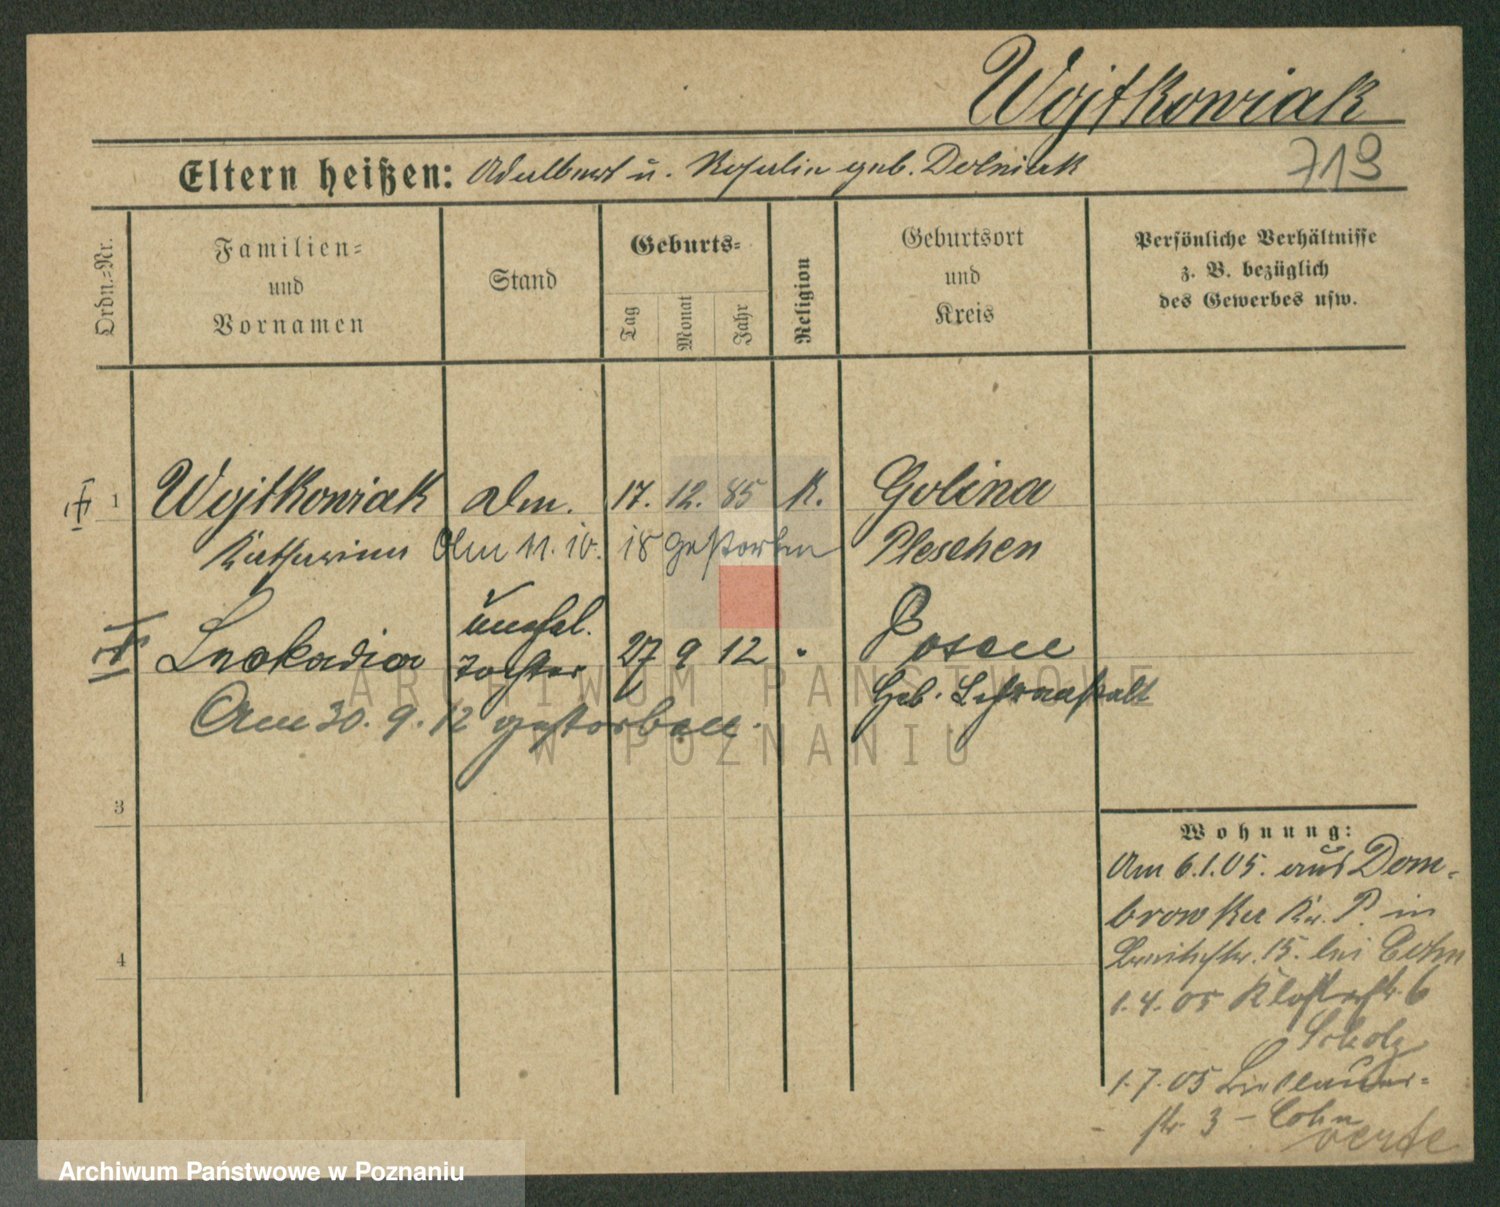 Wojtkowiak
Eltern heißen: Adalbert u. Rosalie geb. Dolniak
719
Ordn.=Nr.
Familien=
und
Vornamen
Stand
Geburts=
Tag
Monat
Jahr
Religion
Geburtsort
und
Kreis
Persönliche Verhältnisse
z. B. bezüglich
des Gewerbes usw.
1 Wojtkowiak Dm. 17. 12. 85 K. Golina
Katharina Am 11. 10. 18 gestorben Pleschen
unehel.
Leokadia Tochter 27 9 12 Posen
Geb. Lehranstalt
Am 30. 9. 12 gestorben.
3
4
Wohnung:
Am 6.1.05. aus Dom-
browka Kr. P. in
Breitestr. 15. bei Cohn
1.4.05 Klosterstr. 6
Scholz
1.7.05
str. 3 - Cohn
verte
ARCHIWUM PAŃSTWOWE
W POZNANIU
Archiwum Państwowe w Poznaniu